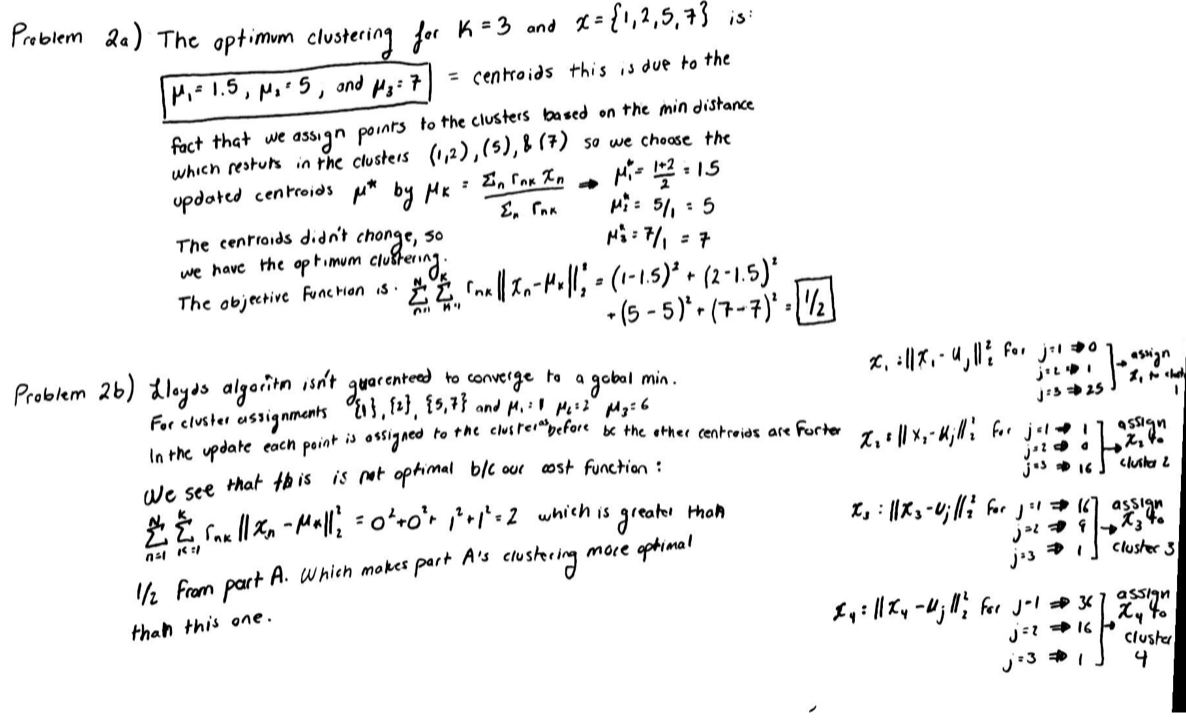 Problem 2a) The optimum clustering for K = 3 and x = {1,2,5,7} is:
μ₁ = 1.5, μ₂ = 5, and μ₃ = 7 = centroids this is due to the
fact that we assign points to the clusters based on the min distance
which restuts in the clusters (1,2), (5), & (7) so we choose the
updated centroids μ* by μₖ = Σₙ rₙₖ xₙ / Σₙ rₙₖ → μ₁* = 1+2/2 = 1.5
μ₂* = 5/1 = 5
μ₃* = 7/1 = 7
The centroids didn't change, so
we have the optimum clustering.
The objective function is: Σₙ₌₁ᴺ Σₖ₌₁ᴷ rₙₖ ||xₙ - μₖ||₂² = (1-1.5)² + (2-1.5)²
+ (5-5)² + (7-7)² = 1/2
Problem 2b) Lloyds algoritm isn't guarenteed to converge to a gobal min.
For cluster assignments {1}, {2}, {5,7} and μ₁ = 1 μ₂ = 2 μ₃ = 6
In the update each point is assigned to the cluster as before bc the other centroids are furter
We see that this is not optimal b/c our cost function:
Σₙ₌₁ᴺ Σₖ₌₁ᴷ rₙₖ ||xₙ - μₖ||₂² = 0² + 0² + 1² + 1² = 2 which is greater than
1/2 from part A. Which makes part A's clustering more optimal
than this one.
x₁ : ||x₁ - u_j||₂² for j=1 ⇒ 0
j=2 ⇒ 1
j=3 ⇒ 25
→ assign
x₁ to
1
x₂ : ||x₂ - u_j||₂² for j=1 ⇒ 1
j=2 ⇒ 0
j=3 ⇒ 16
→ assign
x₂ to
cluster 2
x₃ : ||x₃ - u_j||₂² for j=1 ⇒ 16
j=2 ⇒ 9
j=3 ⇒ 1
→ assign
x₃ to
cluster 3
x₄ : ||x₄ - u_j||₂² for j=1 ⇒ 36
j=2 ⇒ 16
j=3 ⇒ 1
→ assign
x₄ to
cluster
4